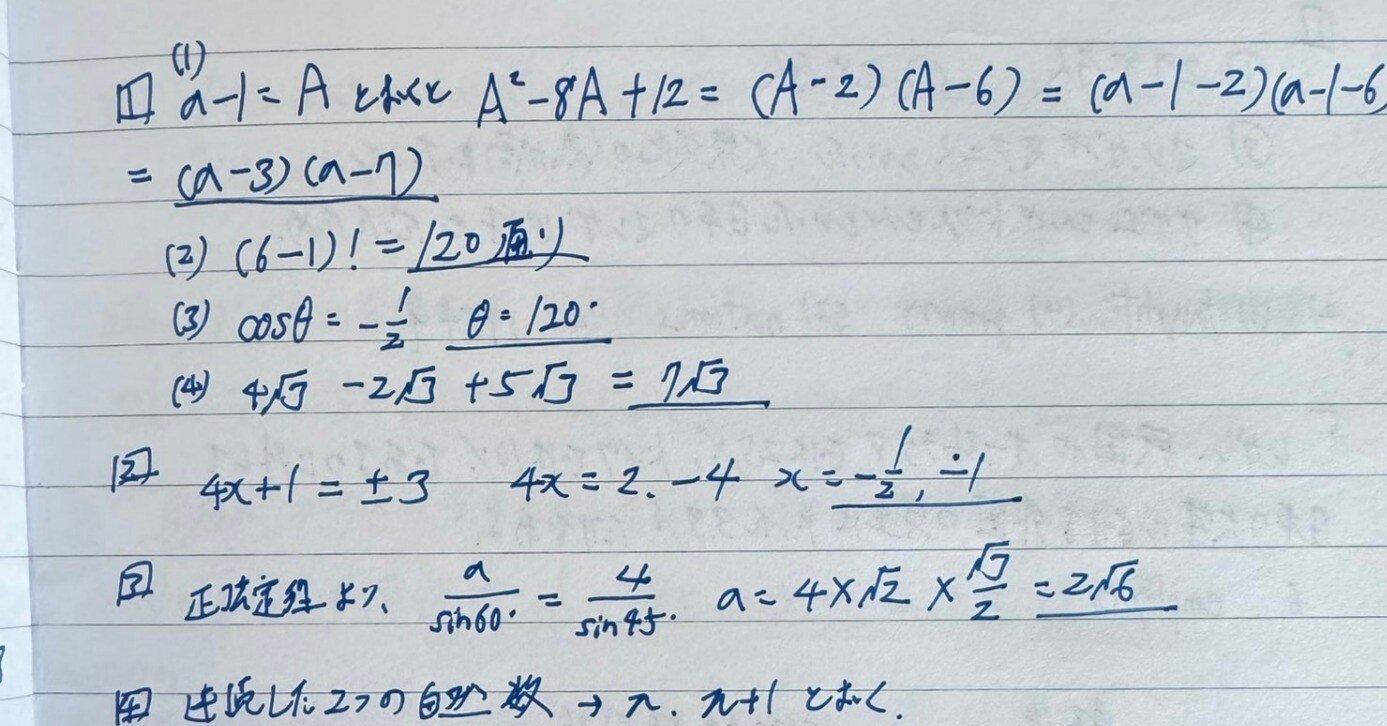 (1)
1 a-1=A とおくと A²-8A+12=(A-2)(A-6)=(a-1-2)(a-1-6
=(a-3)(a-7)
(2) (6-1)!=120通り
(3) cosθ=-1/2 θ=120°
(4) 4√3 -2√3 +5√3 = 7√3
2 4x+1=±3 4x=2. -4 x=-1/2, -1
3 正弦定理より、 a/sin60° = 4/sin45° a=4×√2×√3/2=2√6
4 連続した2つの自然数→n. n+1とおく.